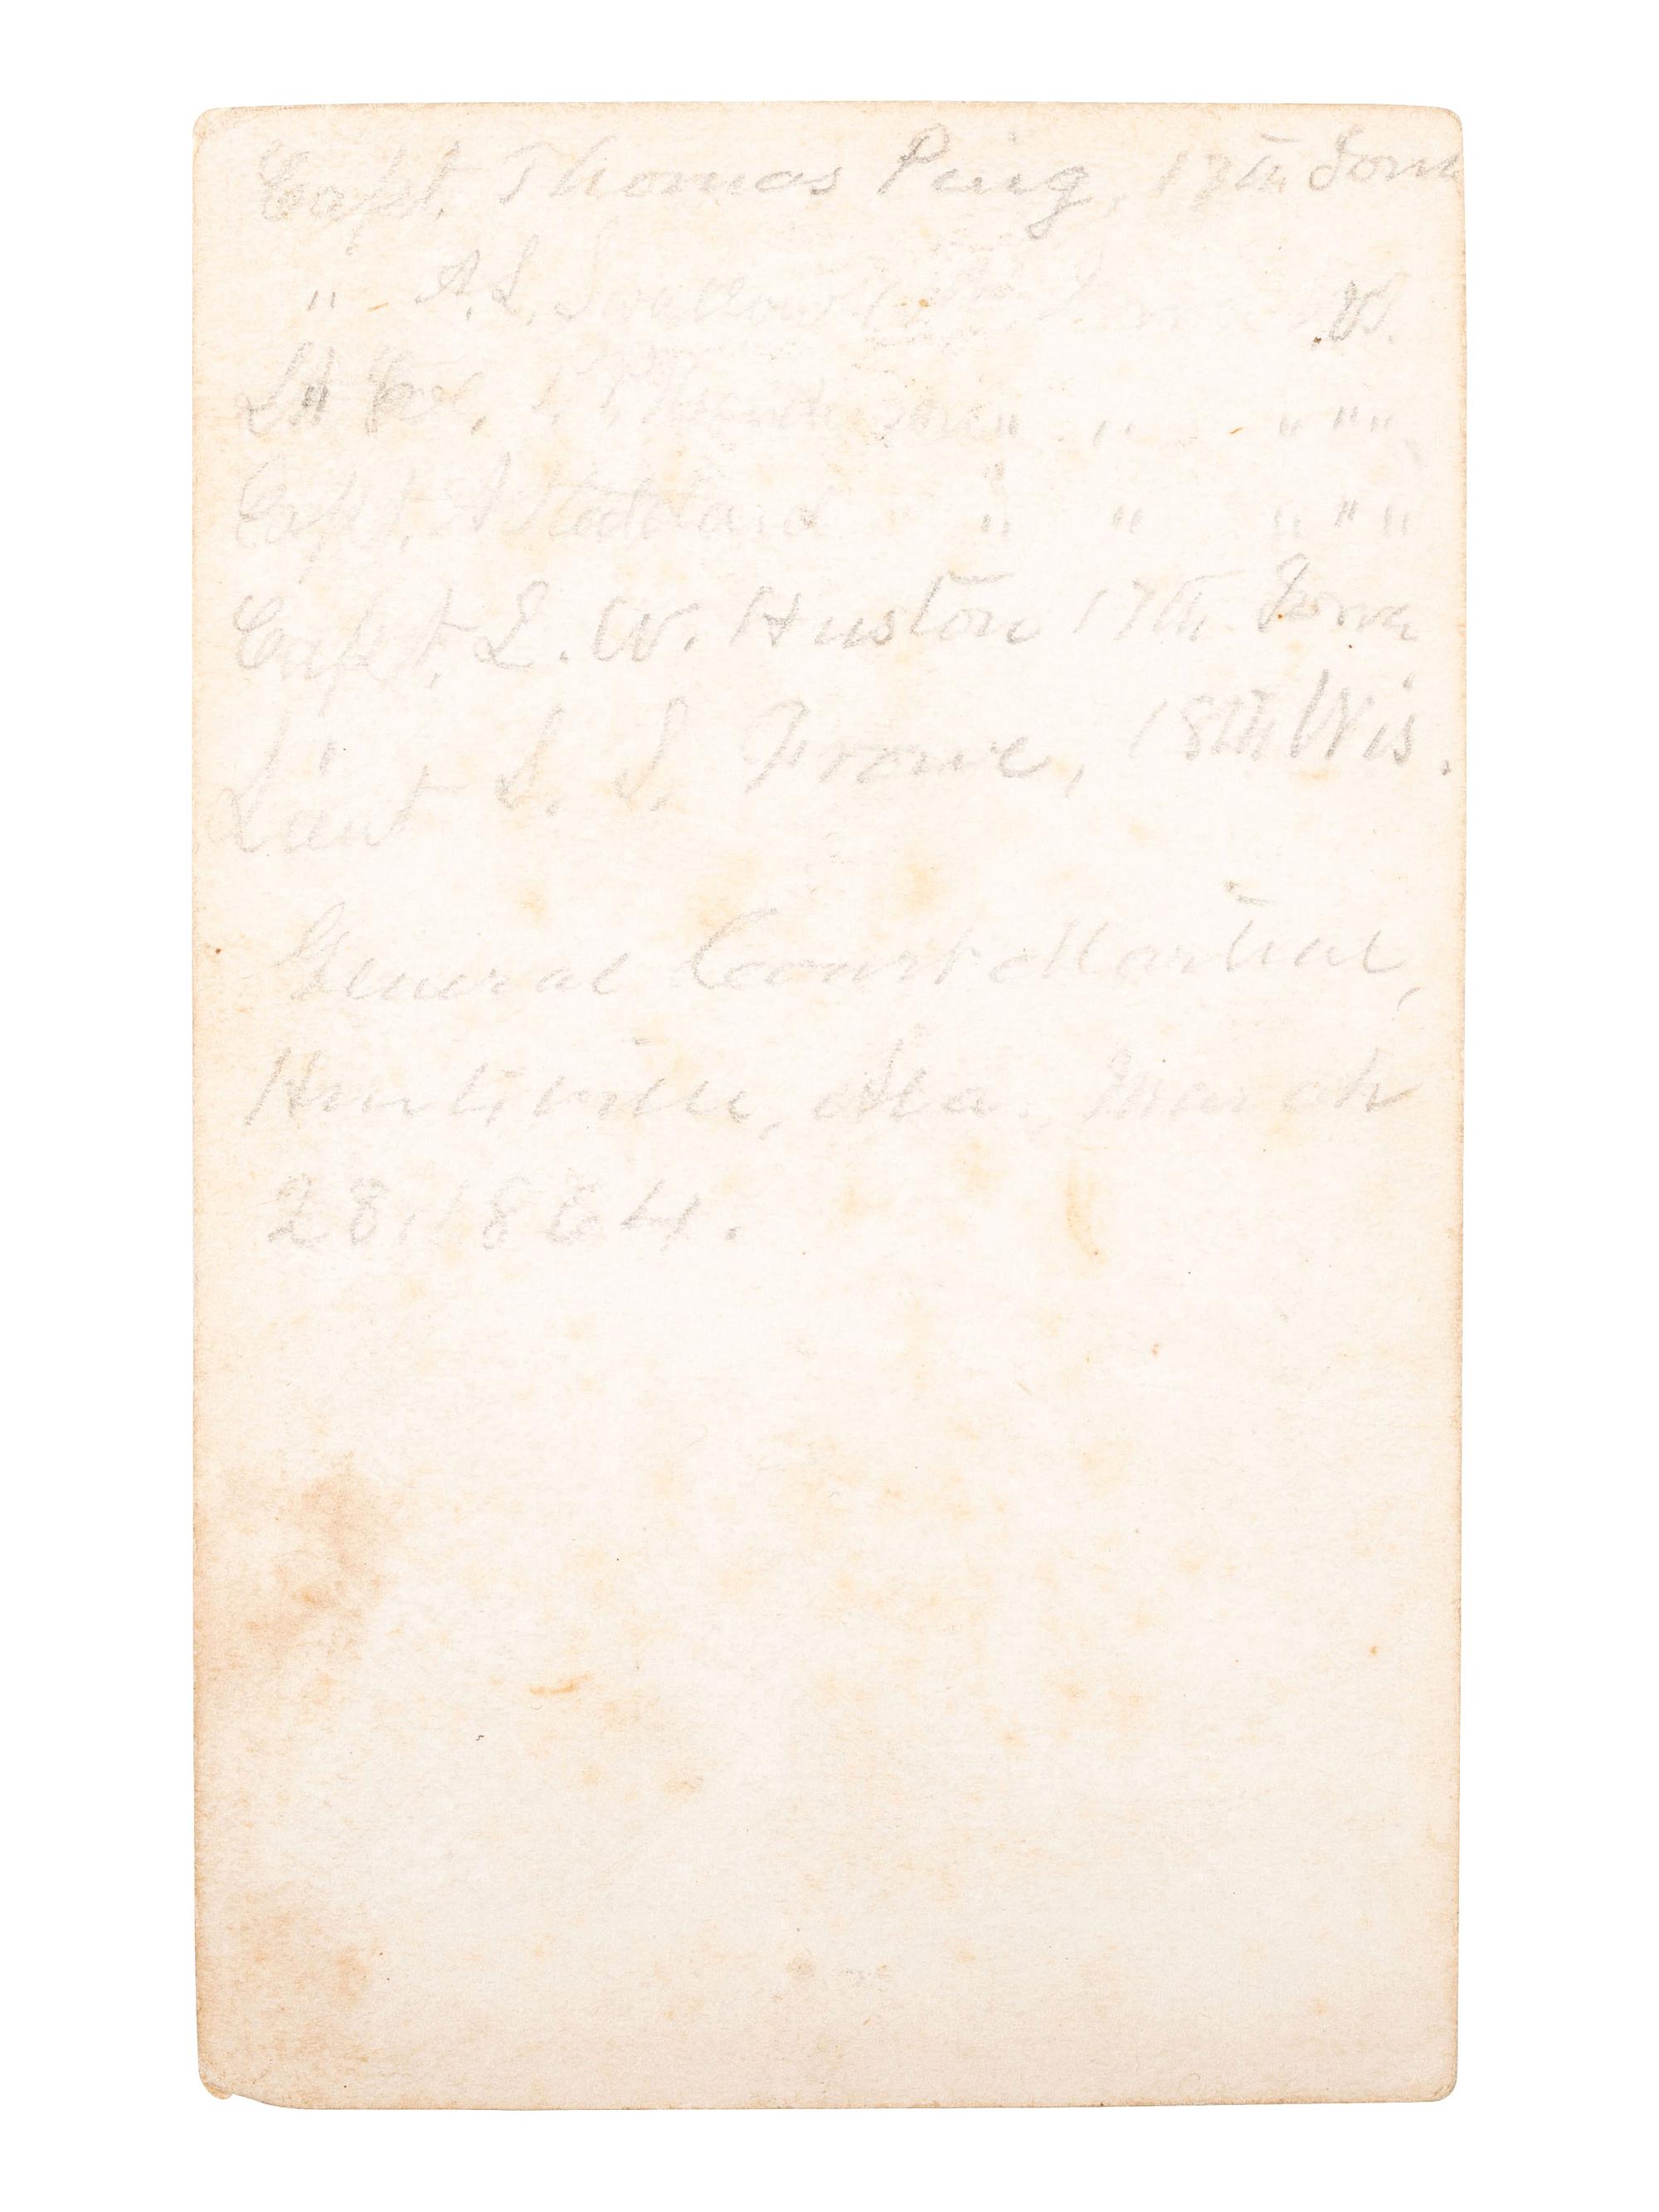 Capt. Thomas Ping, 17th Iowa
" A. L. Swallow 10th Iowa V.
Lt Col. " " " " "
Capt. A Stoddard " " " " "
Capt. L. W. Huston 17th Iowa
Lieut S. S. Frowe, 18th Wis.
General Court Martial,
Huntsville, Ala. March
28, 1864.